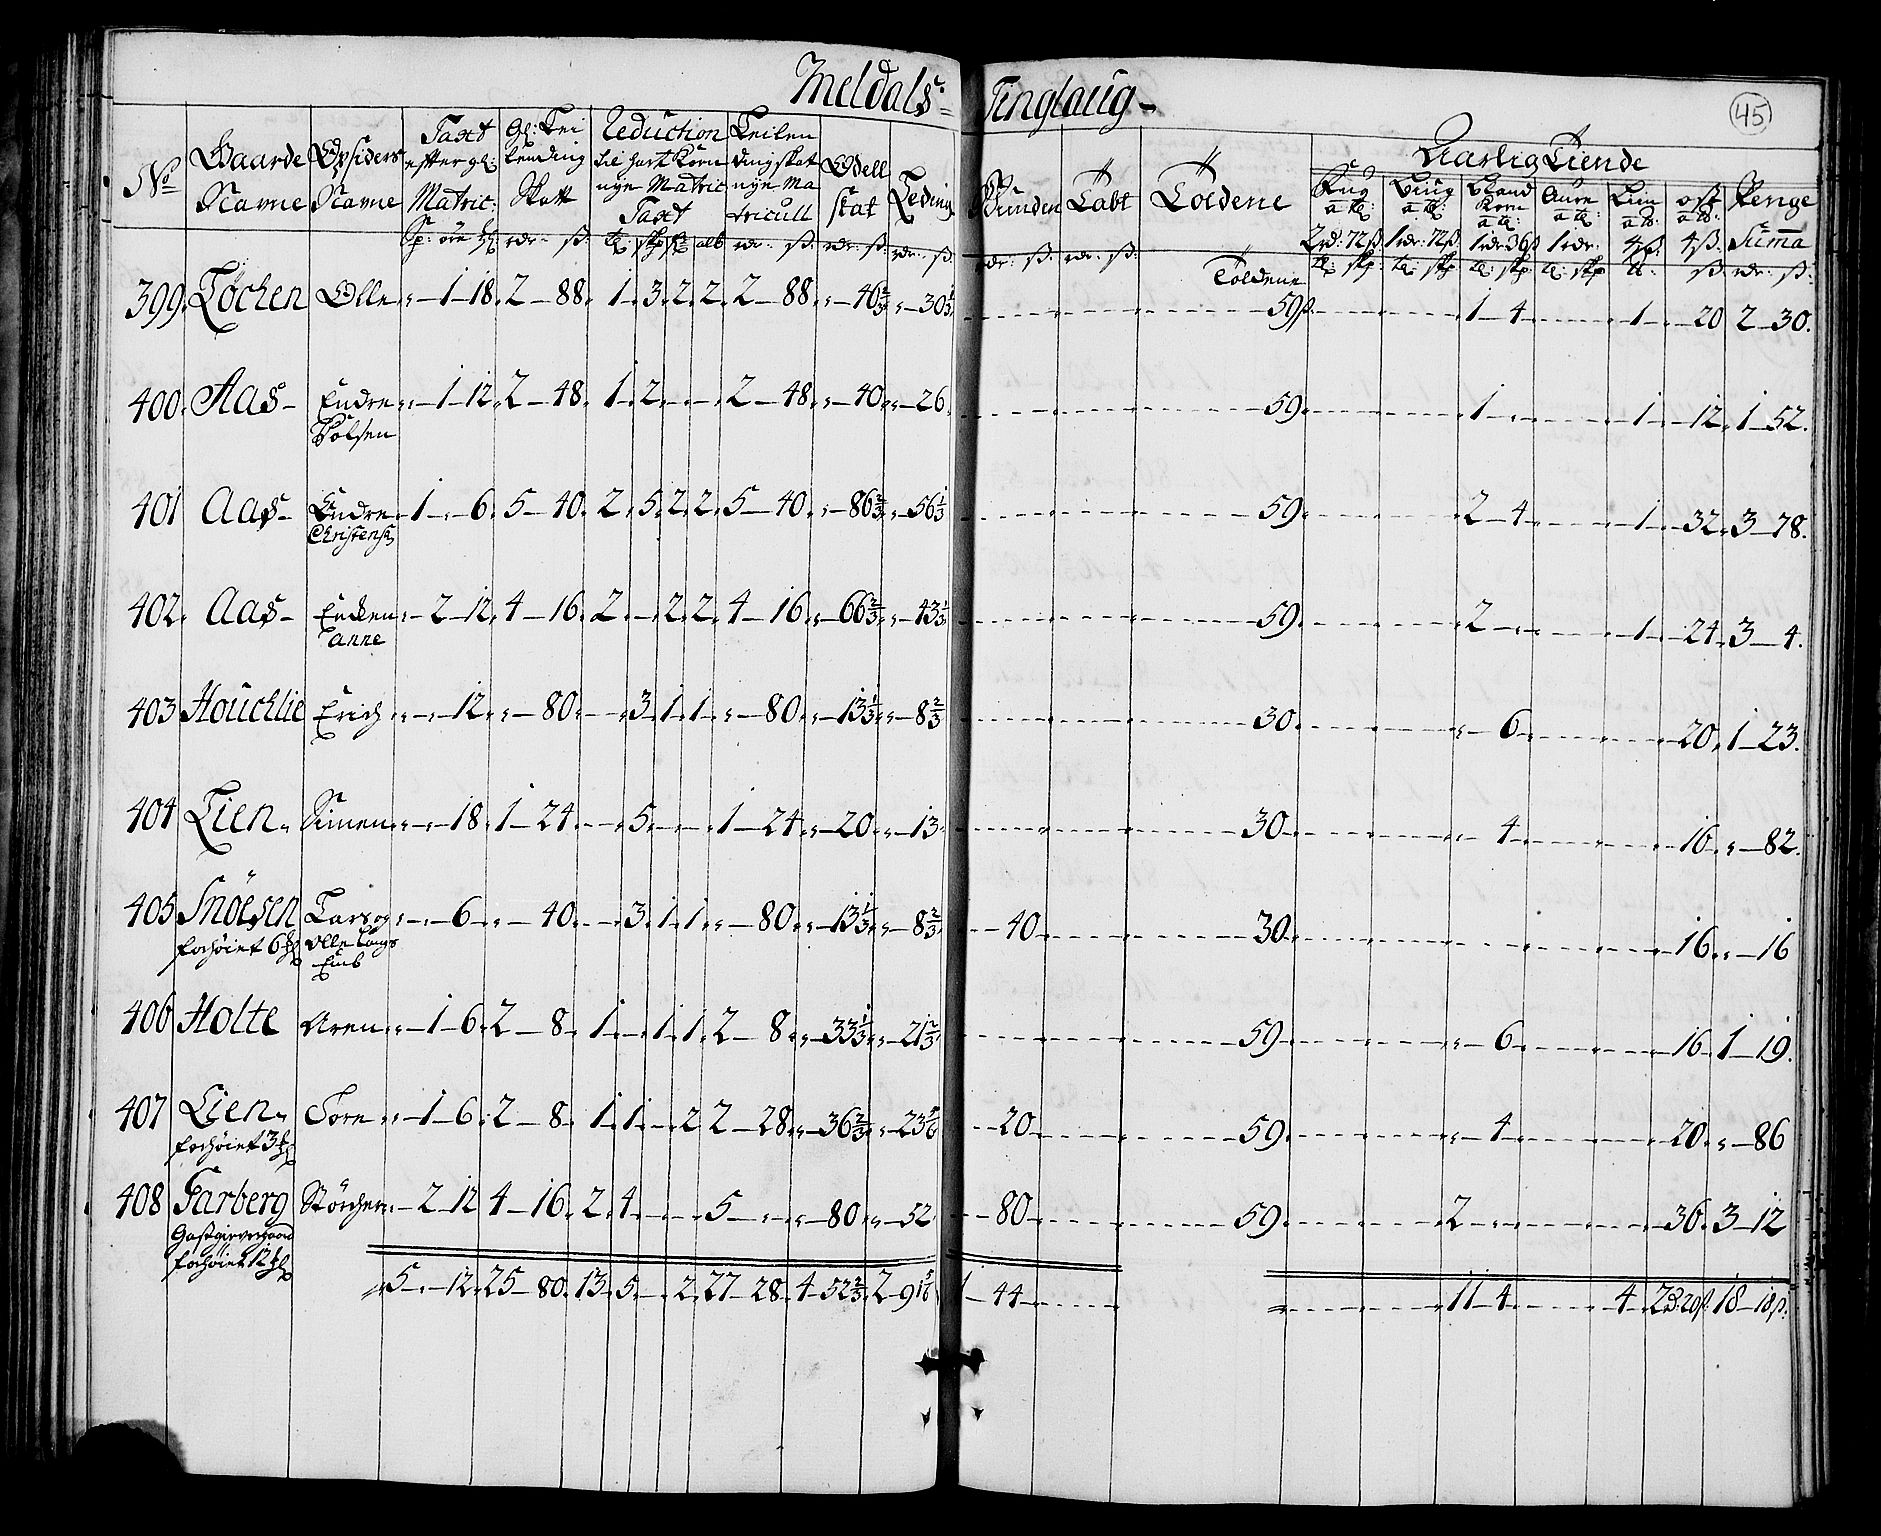 Meldals Tinglaug
45
No Gaarde Navne Opsiders Navne Taxt efter gl: Matric: Gl: Lei lending Skatt Reduction til hart Korn nye Matric Taxt Leilen ding skat nye Ma tricull Odell skat Leding
Aarlig Tiende
Rug a tl: Biug a tl: Bland Korn a tl: Aure a tl: Lin a lb: ost a lb: Penge Summa
2rd: 72ß 1rdr: 72ß 1rdr 36ß 1rdr: 4ß: 4ß.
399. Løchen Olle - 1 - 18. 2 - 88. 1. 3. 2. 2. 2 - 88. - 46 2/3. - 30 1/3. 59ß. 1 - 4 1 20 2 - 30.
400. Aas - Endre - 1 - 12. 2 - 48. 1. 2. 2 - 48. - 40. - 26. 59. 1 1 12. 1 - 52.
401 Aas - Endre 1 - 6. 5 - 40. 2. 5. 2. 2. 5 - 40. - 86 2/3. - 56 1/3 59. 2 - 4 1 32. 3 - 78.
Christens:
402. Aas - Encken - 2 - 12. 4 - 16. 2. - 2. 2. 4 - 16. - 66 2/3. - 43 1/3 59. 2 1 24. 3 - 4.
403 Houchlie Erich - 12. - 80. 3. 1. 1. - 80. - 13 1/3. - 8 2/3 30. 6 20. 1 - 23.
404 Lien. Simen - 18. 1 - 24. 5. 1 - 24. - 20. - 13. 30. 4 16. - 82.
405 Snøesen Lars og - 6 - 40. 3. 1. 1. - 80. - 13 1/3. - 8 2/3 40 30. 16. - 16
forhøiet 6
406 Holte Aren - 1 - 6. 2 - 8. 1. 1. 1. 2 8. - 33 1/3. - 21 2/3 59. 6 16. 1 - 19.
407 Lien - Tore - 1 - 6. 2 - 8. 1. 1. - 2. 2 - 28. - 36 2/3. - 23 5/6 20 59. 4 20. - 86
forhøiet 3
408 Garberg Störcher - 2 - 12. 4 - 16. 2. 4. 5 - 80. - 52. 80 59. 2 36. 3 - 12
Gastgivergaard
forhøiet 12
5. - 12. 25 - 80. 13. 5. - 2. 27 - 28. 4 - 52 2/3. 2 - 91 5/6 1 - 44 11 - 4 4 18 - 18ß.